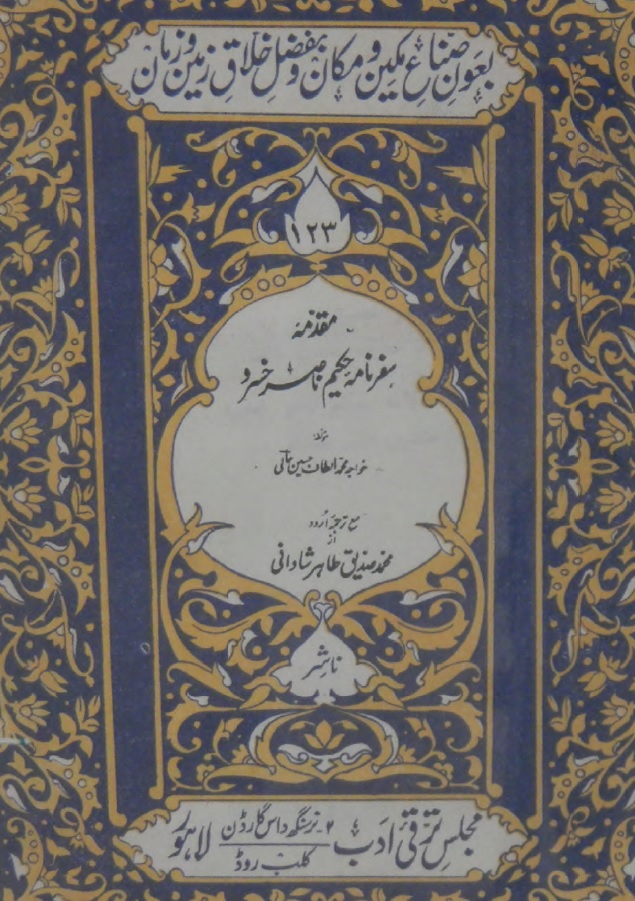 بعونِ صنّاعِ مکین و مکان و بفضلِ خلاقِ زمین و زمان
۱۲۳
مقدمۂ
سفرنامۂ حکیم ناصر خسرو
مؤلفہ
خواجہ محمد الطاف حسین حالی
مع ترجمۂ اُردو
از
محمد صدیق طاہر شادانی
ناشر
مجلسِ ترقیٔ ادب ۲۔ نرسنگھ داس گارڈن لاہور
کلب روڈ